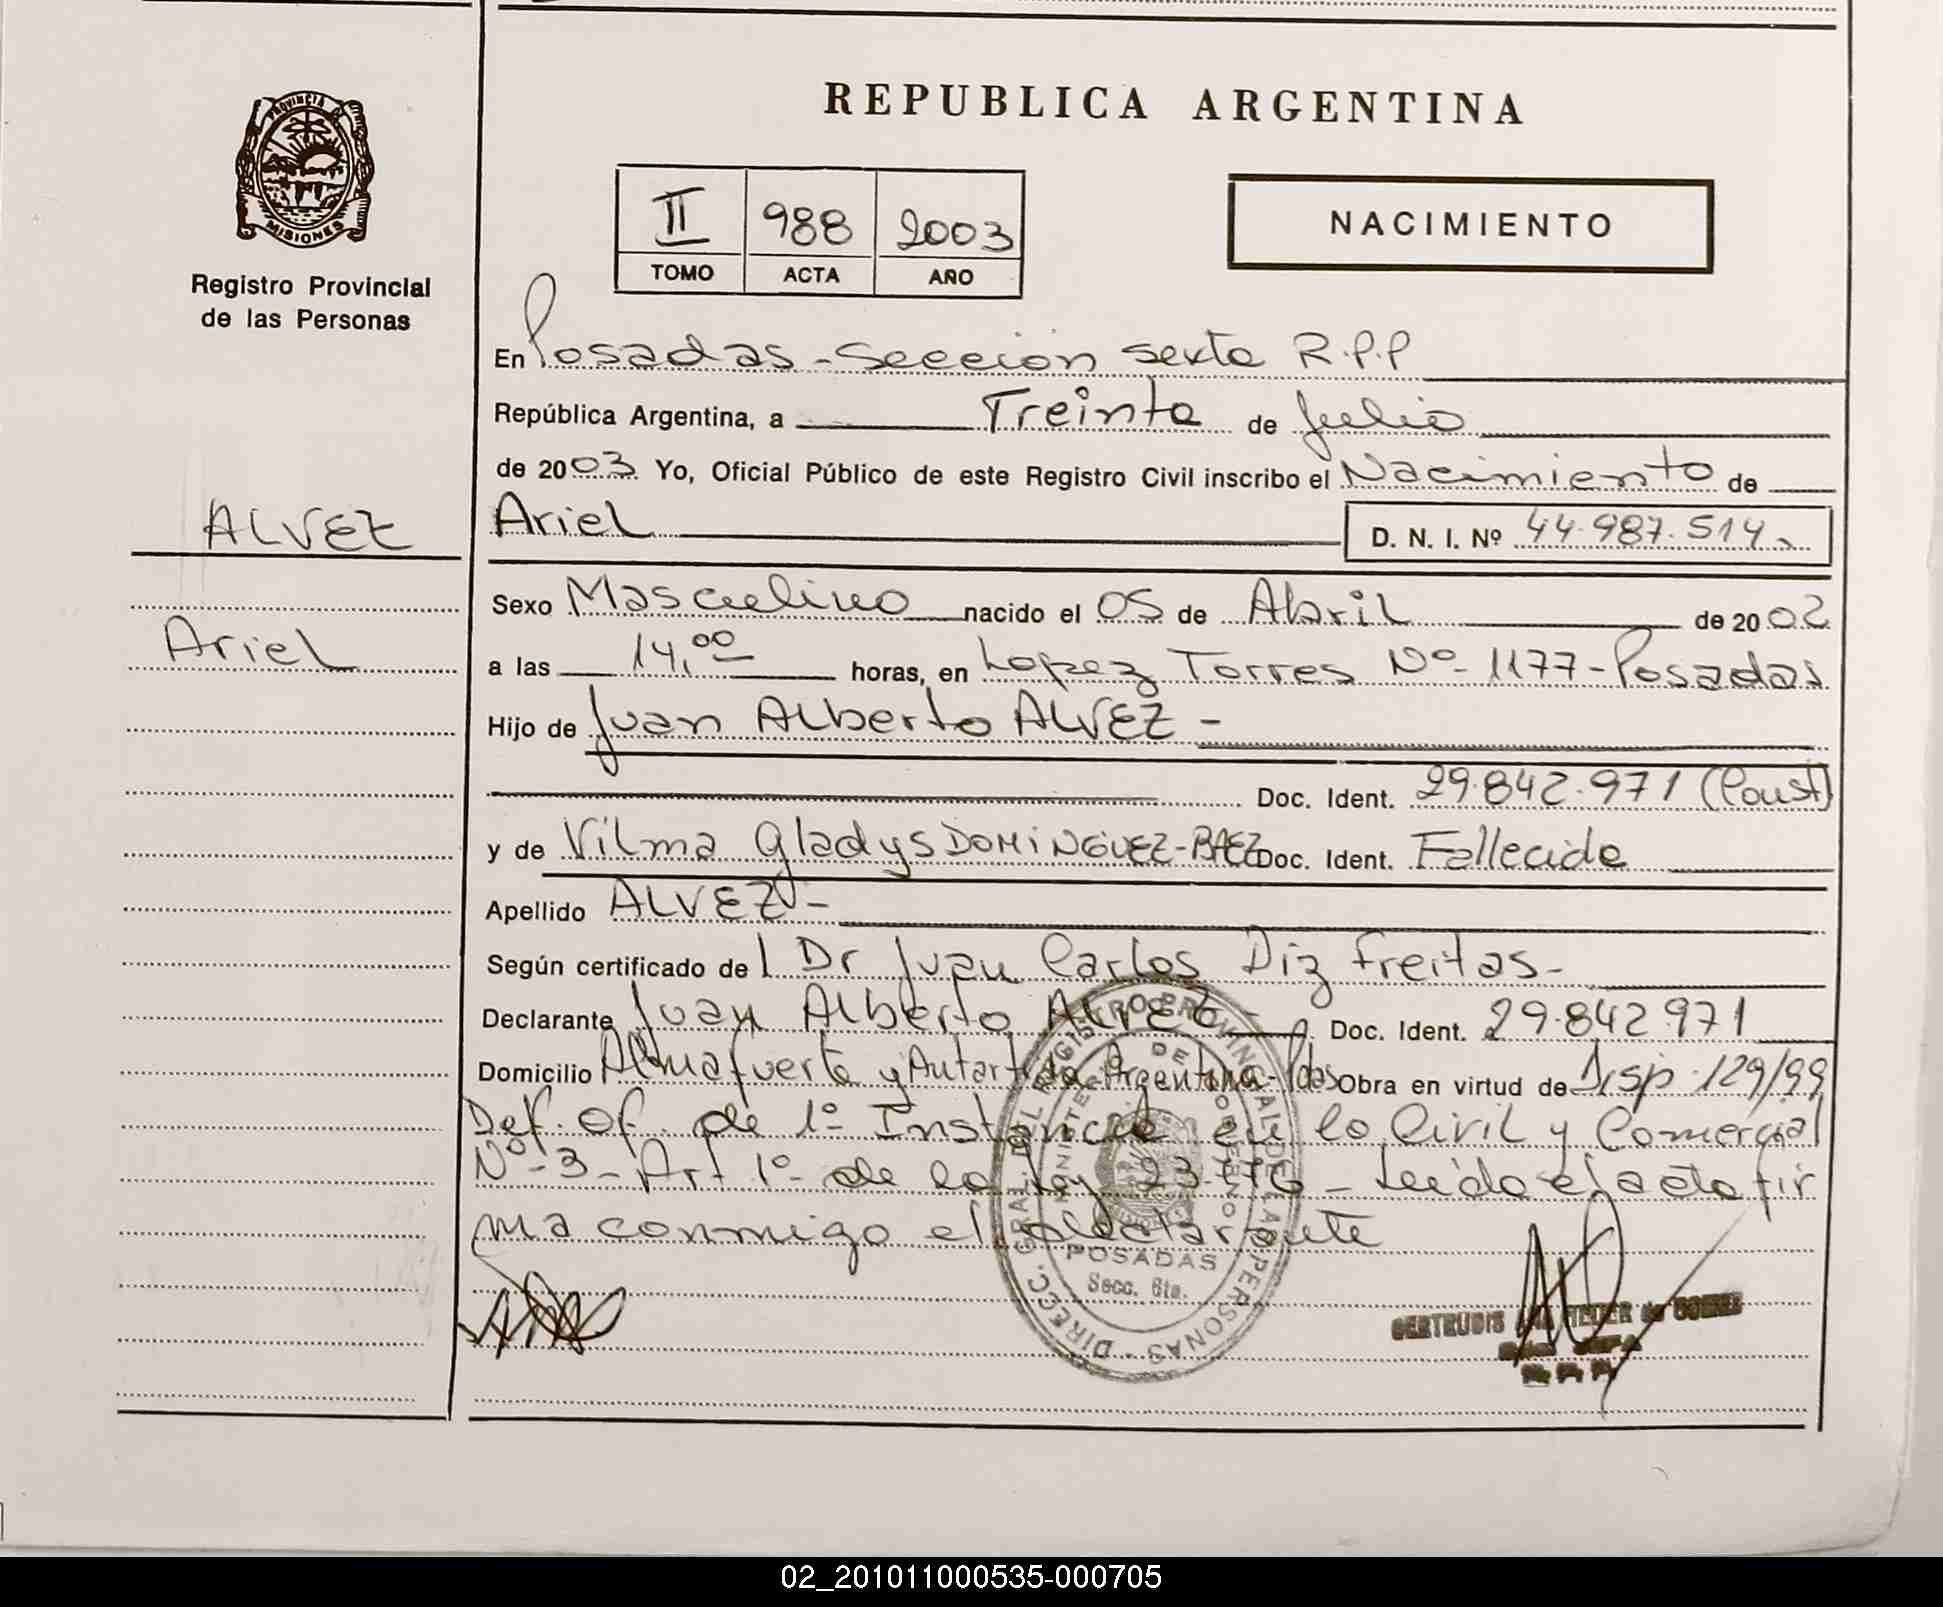 REPUBLICA ARGENTINA
PROVINCIA DE MISIONES
Registro Provincial
de las Personas
II 988 2003
TOMO ACTA AÑO
NACIMIENTO
En Posadas - Sección sexta R.P.P
República Argentina, a Treinta de Julio
de 2003. Yo, Oficial Público de este Registro Civil inscribo el Nacimiento de
ALVEZ
Ariel
Ariel D. N. I. Nº 44.987.514
Sexo Masculino nacido el 05 de Abril de 2002
a las 14,00 horas, en Lopez Torres Nº 1177 - Posadas
Hijo de Juan Alberto ALVEZ -
Doc. Ident. 29.842.971 (Const)
y de Vilma Gladys DOMINGUEZ - BAEZ Doc. Ident. Fallecida
Apellido ALVEZ -
Según certificado del Dr Juan Carlos Diz Freitas -
Declarante Juan Alberto ALVEZ - Doc. Ident. 29.842.971
Domicilio Almafuerte y Antartida Argentina - Pdas Obra en virtud de Disp. 129/99
Def. Of. de 1º Instancia en lo Civil y Comercial
Nº 3 - Art 1º de la Ley 23.776 - Leído el acta fir
ma conmigo el declarante
DIRECC. GRAL. DEL REGISTRO PROVINCIAL DE LAS PERSONAS
POSADAS
Secc. 6ta.
GERTRUDIS
02_201011000535-000705